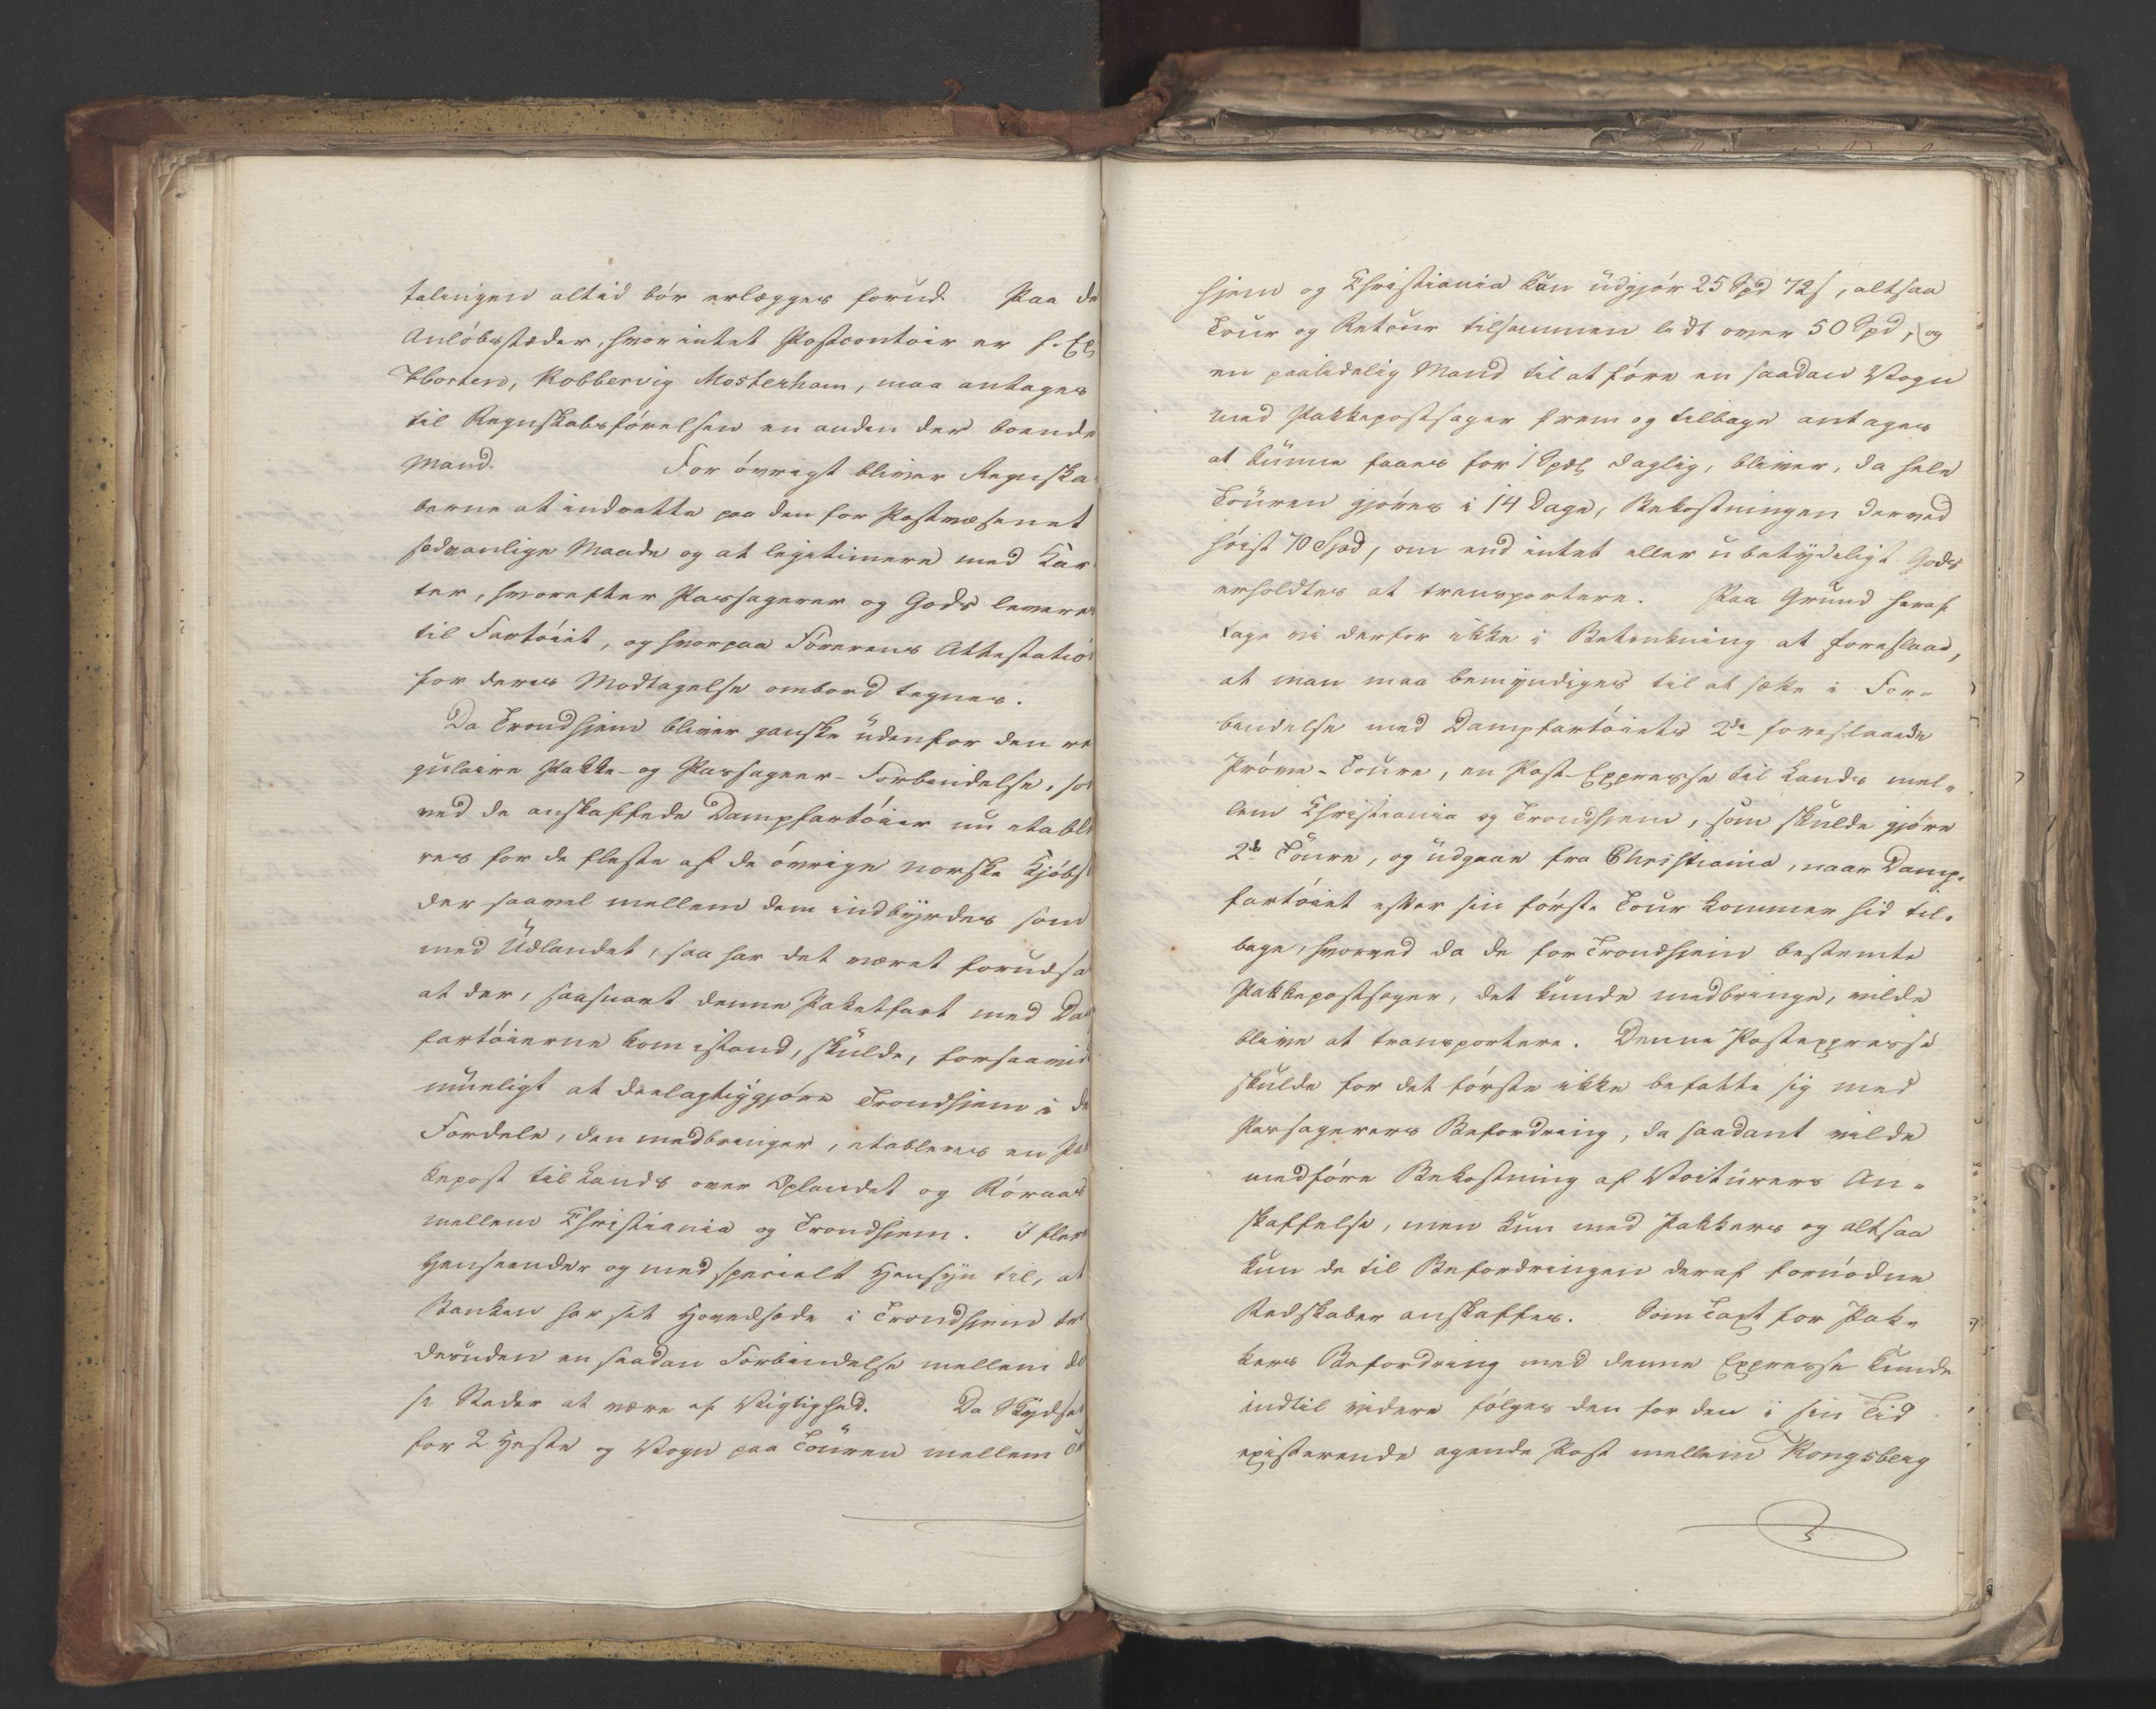 talingen altid bör erlægges forud. Paa de
Anlöbsstæder, hvor intet Postcontoir er f. Ex
Horten, Kobbervig Mosterham, maa antages
til Regnskabsförelsen en anden der boende
Mand. For övrigt bliver Regnska-
berne at indrette paa den for Postvæsenet
sædvanlige Maade og at legitimere med Kar
ter, hvorefter Passagerer og Gods leveres
til Fartöiet, og hvorpaa Förerens Attestatio
for deres Modtagelse ombord tegnes.
Da Trondhjem bliver ganske udenfor den re
gulaire Pakke- og Passageer-Forbindelse, so
ved de anskaffede Dampfartöier nu etable
res for de fleste af de övrige norske Kjöbs
der saavel mellem dem indbyrdes som
med Udlandet, saa har det været forudsa
at der, saasnart denne Paketfart med Da
fartöierne kom istand, skulde, forsaavid
mueligt at deelagtiggjöre Trondhjem i de
Fordele, den medbringer, etableres en Pa
kepost til Lands over Oplandet og Röraas
mellem Christiania og Trondhjem. I flere
Henseender og med specielt Hensyn til, at
Banken har sit Hovedsæde i Trondhjem tr
desuden en saadan Forbindelse mellem di
se Stæder at være af Vigtighed. Da Skydse
for 2 Heste og Vogn paa Touren mellem
hjem og Christiania kun udgjör 25 Spd 72 s, altsaa
Tour og Retour tilsammen lidt over 50 Spd, og
en paalidelig Mand til at före en saadan Vogn
med Pakkepostsager frem og tilbage antages
at kunne faaes for 1 Spd daglig, bliver, da hele
Touren gjöres i 14 Dage, Bekostningen derved
höist 70 Spd, om end intet eller ubetydeligt Gods
erholdtes at transportere. Paa Grund heraf
tage vi derfor ikke i Betænkning at foreslaae,
at man maa bemyndiges til at sætte i For-
bindelse med Dampfartöiets 2de foreslaaede
Pröve-Toure, en Post-Expresse til Lands mel-
lem Christiania og Trondhjem, som skulde gjöre
2de Toure, og udgaae fra Christiania, naar Damp-
fartöiet efter sin förste Tour kommer hid til-
bage, hvorved da de for Trondhjem bestemte
Pakkepostsager, det kunde medbringe, vilde
blive at transportere. Denne Postexpresse
skulde for det förste ikke befatte sig med
Passagerers Befordring, da saadant vilde
medföre Bekostning af Voiturers An-
skaffelse, men kun med Pakkers og altsaa
kun de til Befordringen deraf fornödne
Redskaber anskaffes. Som Taxt for Pak-
kers Befordring med denne Expresse kunde
indtil videre fölges den for den i sin Tid
existerende agende Post mellem Kongsberg